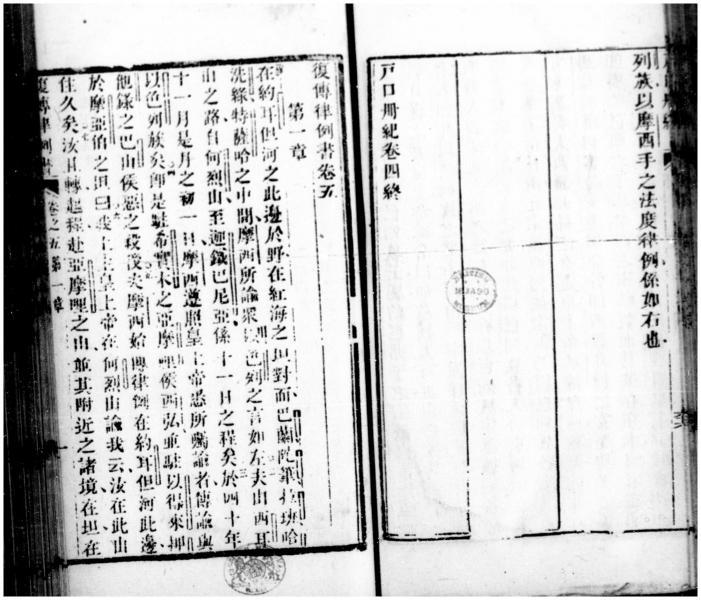 列族以摩西手之法度律例係如右也
戶口冊紀卷四終
復傳律例書卷五
第一章
在約耳但河之此邊於野在紅海之坦對面巴蘭陀弗拉班哈
洗綠特薩哈之中間摩西所諭眾以色列之言如左夫由西耳
山之路自何烈山至迦鐵巴尼亞係十一日之程矣於四十年
十一月是月之初一日摩西遵照皇上帝悉所囑諭者傳諭與
以色列族矣即是駐希實木之亞摩理侯西弘並駐以得來押
他錄之巴山侯惡之殺後夫摩西始傳律例在約耳但河此邊
於摩亞伯之坦曰我上主皇上帝在何烈山諭我云汝在此山
住久矣汝且轉起程赴亞摩理之山並其附近之諸境在坦在
復傳律例書
卷之五第一章
一